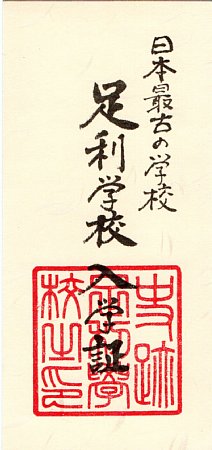 日本最古の学校
足利学校
入学証
史跡
足利学
校之印